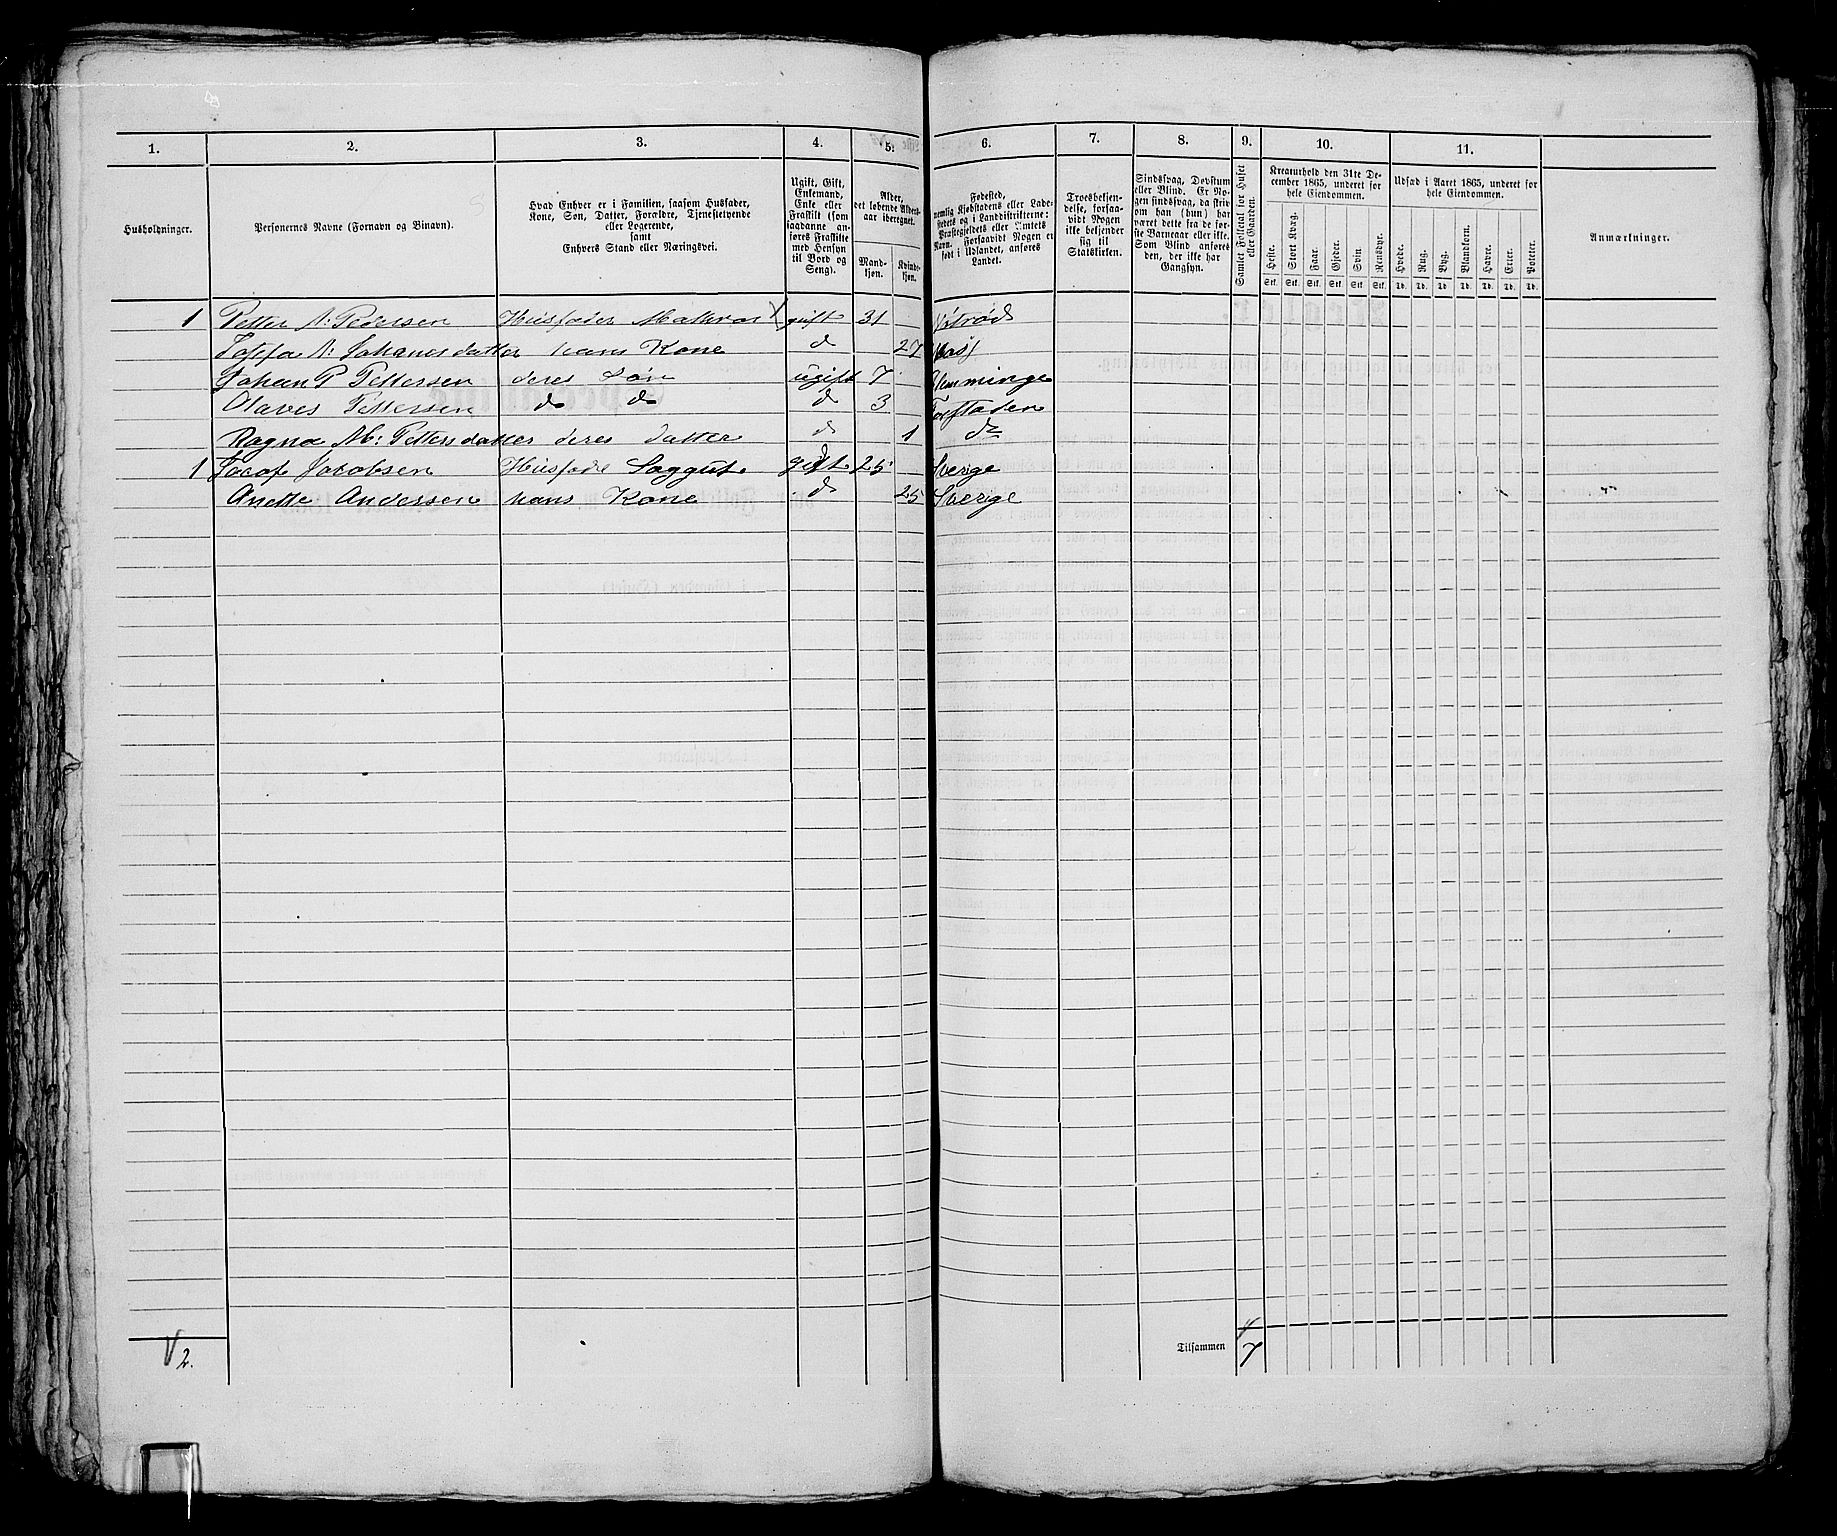 1. 2. 3. 4. 5. 6. 7. 8. 9. 10. 11.
Husholdninger.
Personernes Navne (Fornavn og Binavn).
Hvad Enhver er i Familien, saasom Husfader,
Kone, Søn, Datter, Forældre, Tjenestetyende
eller Logerende,
samt
Enhvers Stand eller Næringsvei.
Ugift, Gift,
Enkemand,
Enke eller
Fraskilt (som
saadanne an-
føres Fraskilte
med Hensyn
til Bord og
Seng).
Alder,
det løbende Alders-
aar iberegnet.
Mand-
kjøn.
Kvinde-
kjøn.
Fødested,
nemlig Kjøbstadens eller Lade-
stedets og i Landdistrikterne:
Præstegjeldets eller Amtets
Navn. Forsaavidt Nogen er
født i Udlandet, anføres
Landet.
Troesbekjen-
delse, forsaa-
vidt Nogen
ikke bekjender
sig til
Statskirken.
Sindssvag, Døvstum
eller Blind. Er No-
gen sindssvag, da skriv
om han (hun) har
været dette fra de før-
ste Barneaar eller ikke.
Som Blind anføres
den, der ikke har
Gangsyn.
Samlet Folketal for Huset
eller Gaarden.
Kreaturhold den 31te De-
cember 1865, underet for
hele Eiendommen.
Heste. Stort Kvæg. Faar. Gjeder. Svin. Rensdyr.
Stk. Stk. Stk. Stk. Stk. Stk.
Udsæd i Aaret 1865, underet for
hele Eiendommen.
Hvede. Rug. Byg. Blandkorn. Havre. Erter. Poteter.
Td. Td. Td. Td. Td. Td. Td.
Anmærkninger.
1 Petter A: Pedersen Husfader Mathros gift 31
A: Johanesdatter hans Kone d 27
Johan P Pettersen deres Søn ugift 7
Olaves Pettersen d d d 3
Ragna M: Pettersdatter deres datter d 1 do
1 Jacob Jacobsen gift 25 Sverige
Anette Andersen hans Kone d 25 Sverige
2.
Tilsammen 7